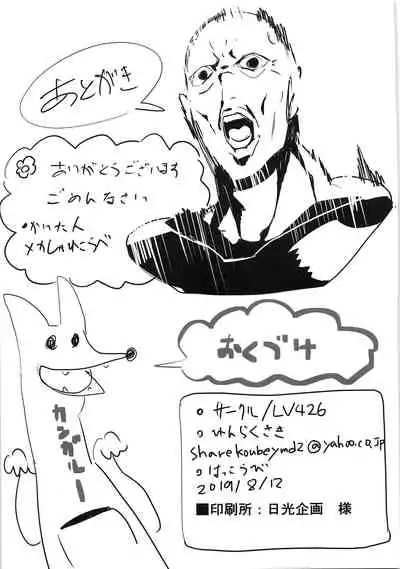 あとがき
ありがとうございます
ごめんなさい
・かいた人
メカしゃれこうべ
おくづけ
カンガルー
○サークル/LV426
○れんらくさき
sharekoubeymd2@yahoo.co.jp
○はっこうび
2019/8/12
■印刷所：日光企画　様